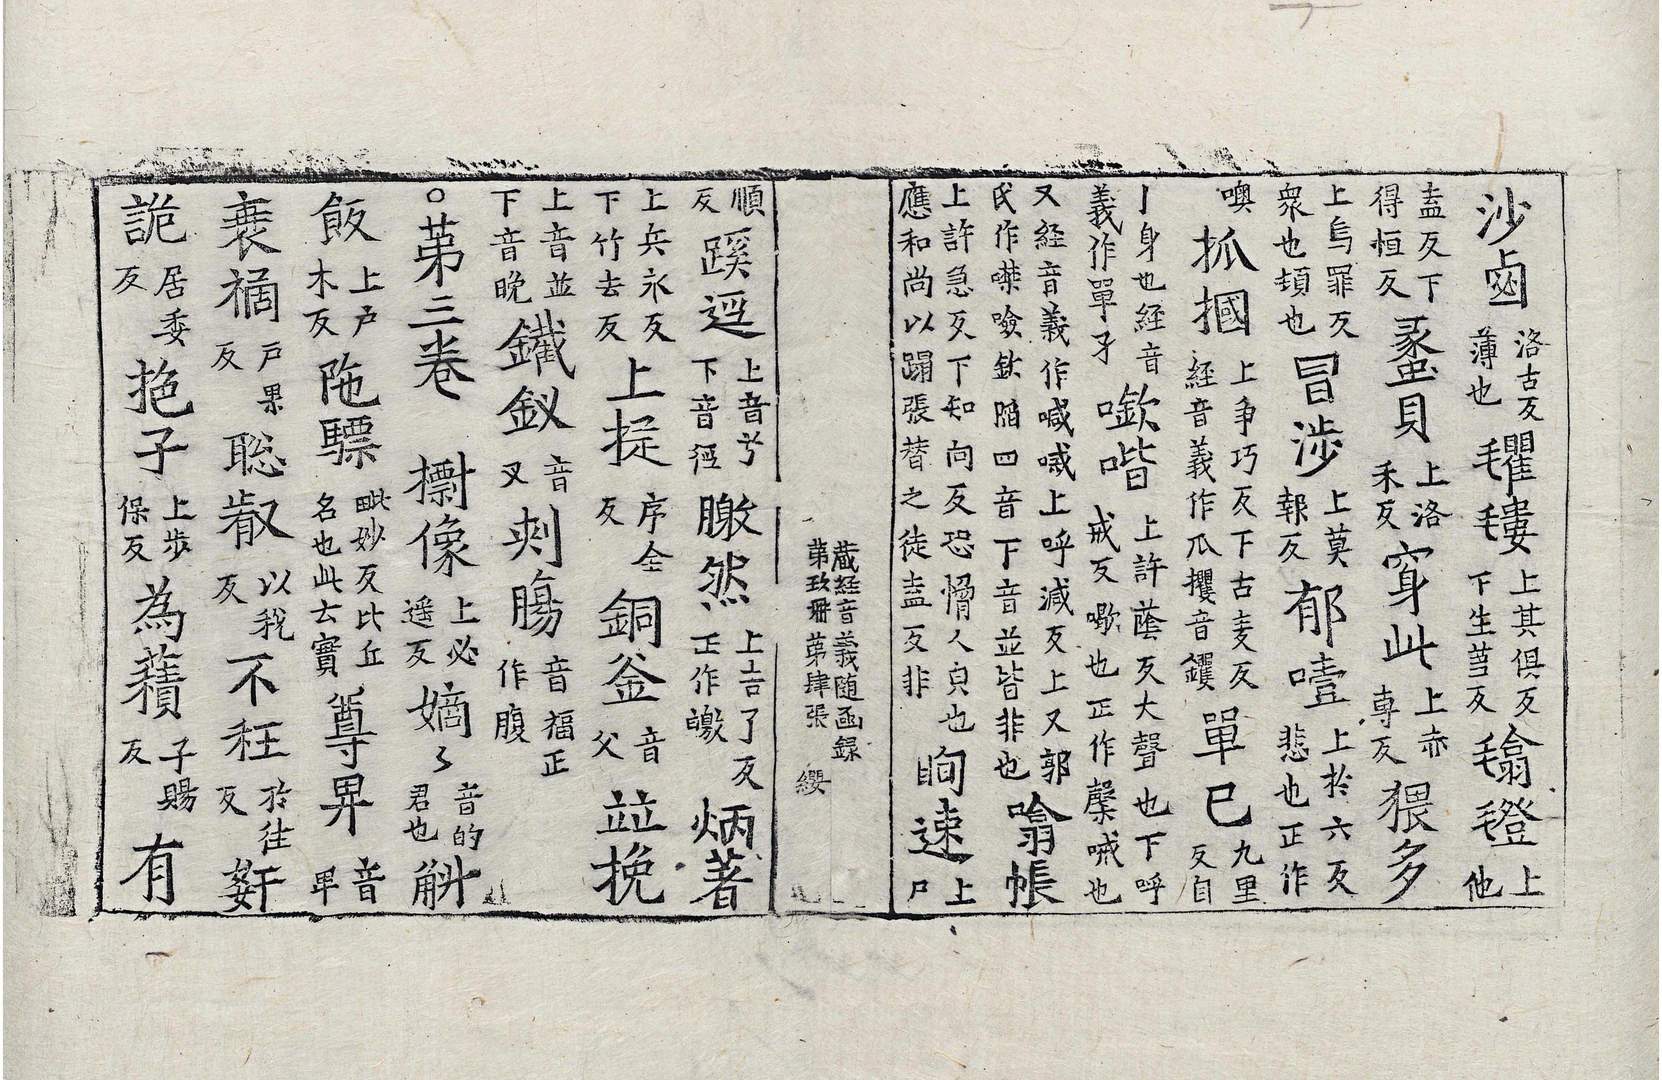 沙鹵洛古反薄也氍毹上其俱反下生芻反毾㲪上他
盍反下得恒反蠡貝上洛禾反穿此上亦專反猥多
上烏罪反衆也頓也冒涉上莫報反郁噎上於六反悲也正作
噢抓摑上爭巧反下古麦反經音義作爪攫音钁單已九里反自
丨身也經音義作單孑㘅喈上許蔭反大聲也下呼戒反㗿也正作䫴㖑也
又経音義作喊㖑上呼減反上又郭氏作㗲嶮欽䧟四音下音並皆非也噏帳
上許急反下知向反恐愶人皃也應和尚以蹋張替之徒盍反非眴速上尸
藏経音義随函録第玖冊第肆張 纓
順反蹊逕上音兮下音徑曒然上吉了反正作皦炳著
上兵永反下竹去反上㨗序全反銅釜音父並挽
上音並下音晚鐵釵音叉刺腸音福正作腹
○第三卷 㨷像上必遥反嫡〻音的君也斛
飯上户木反陁驃毗妙反比丘名也此云實尊畀音畢
裹禍户果反聡叡以我反不秅於往反姧
詭居委反抱子上步保反為蕷子賜反有